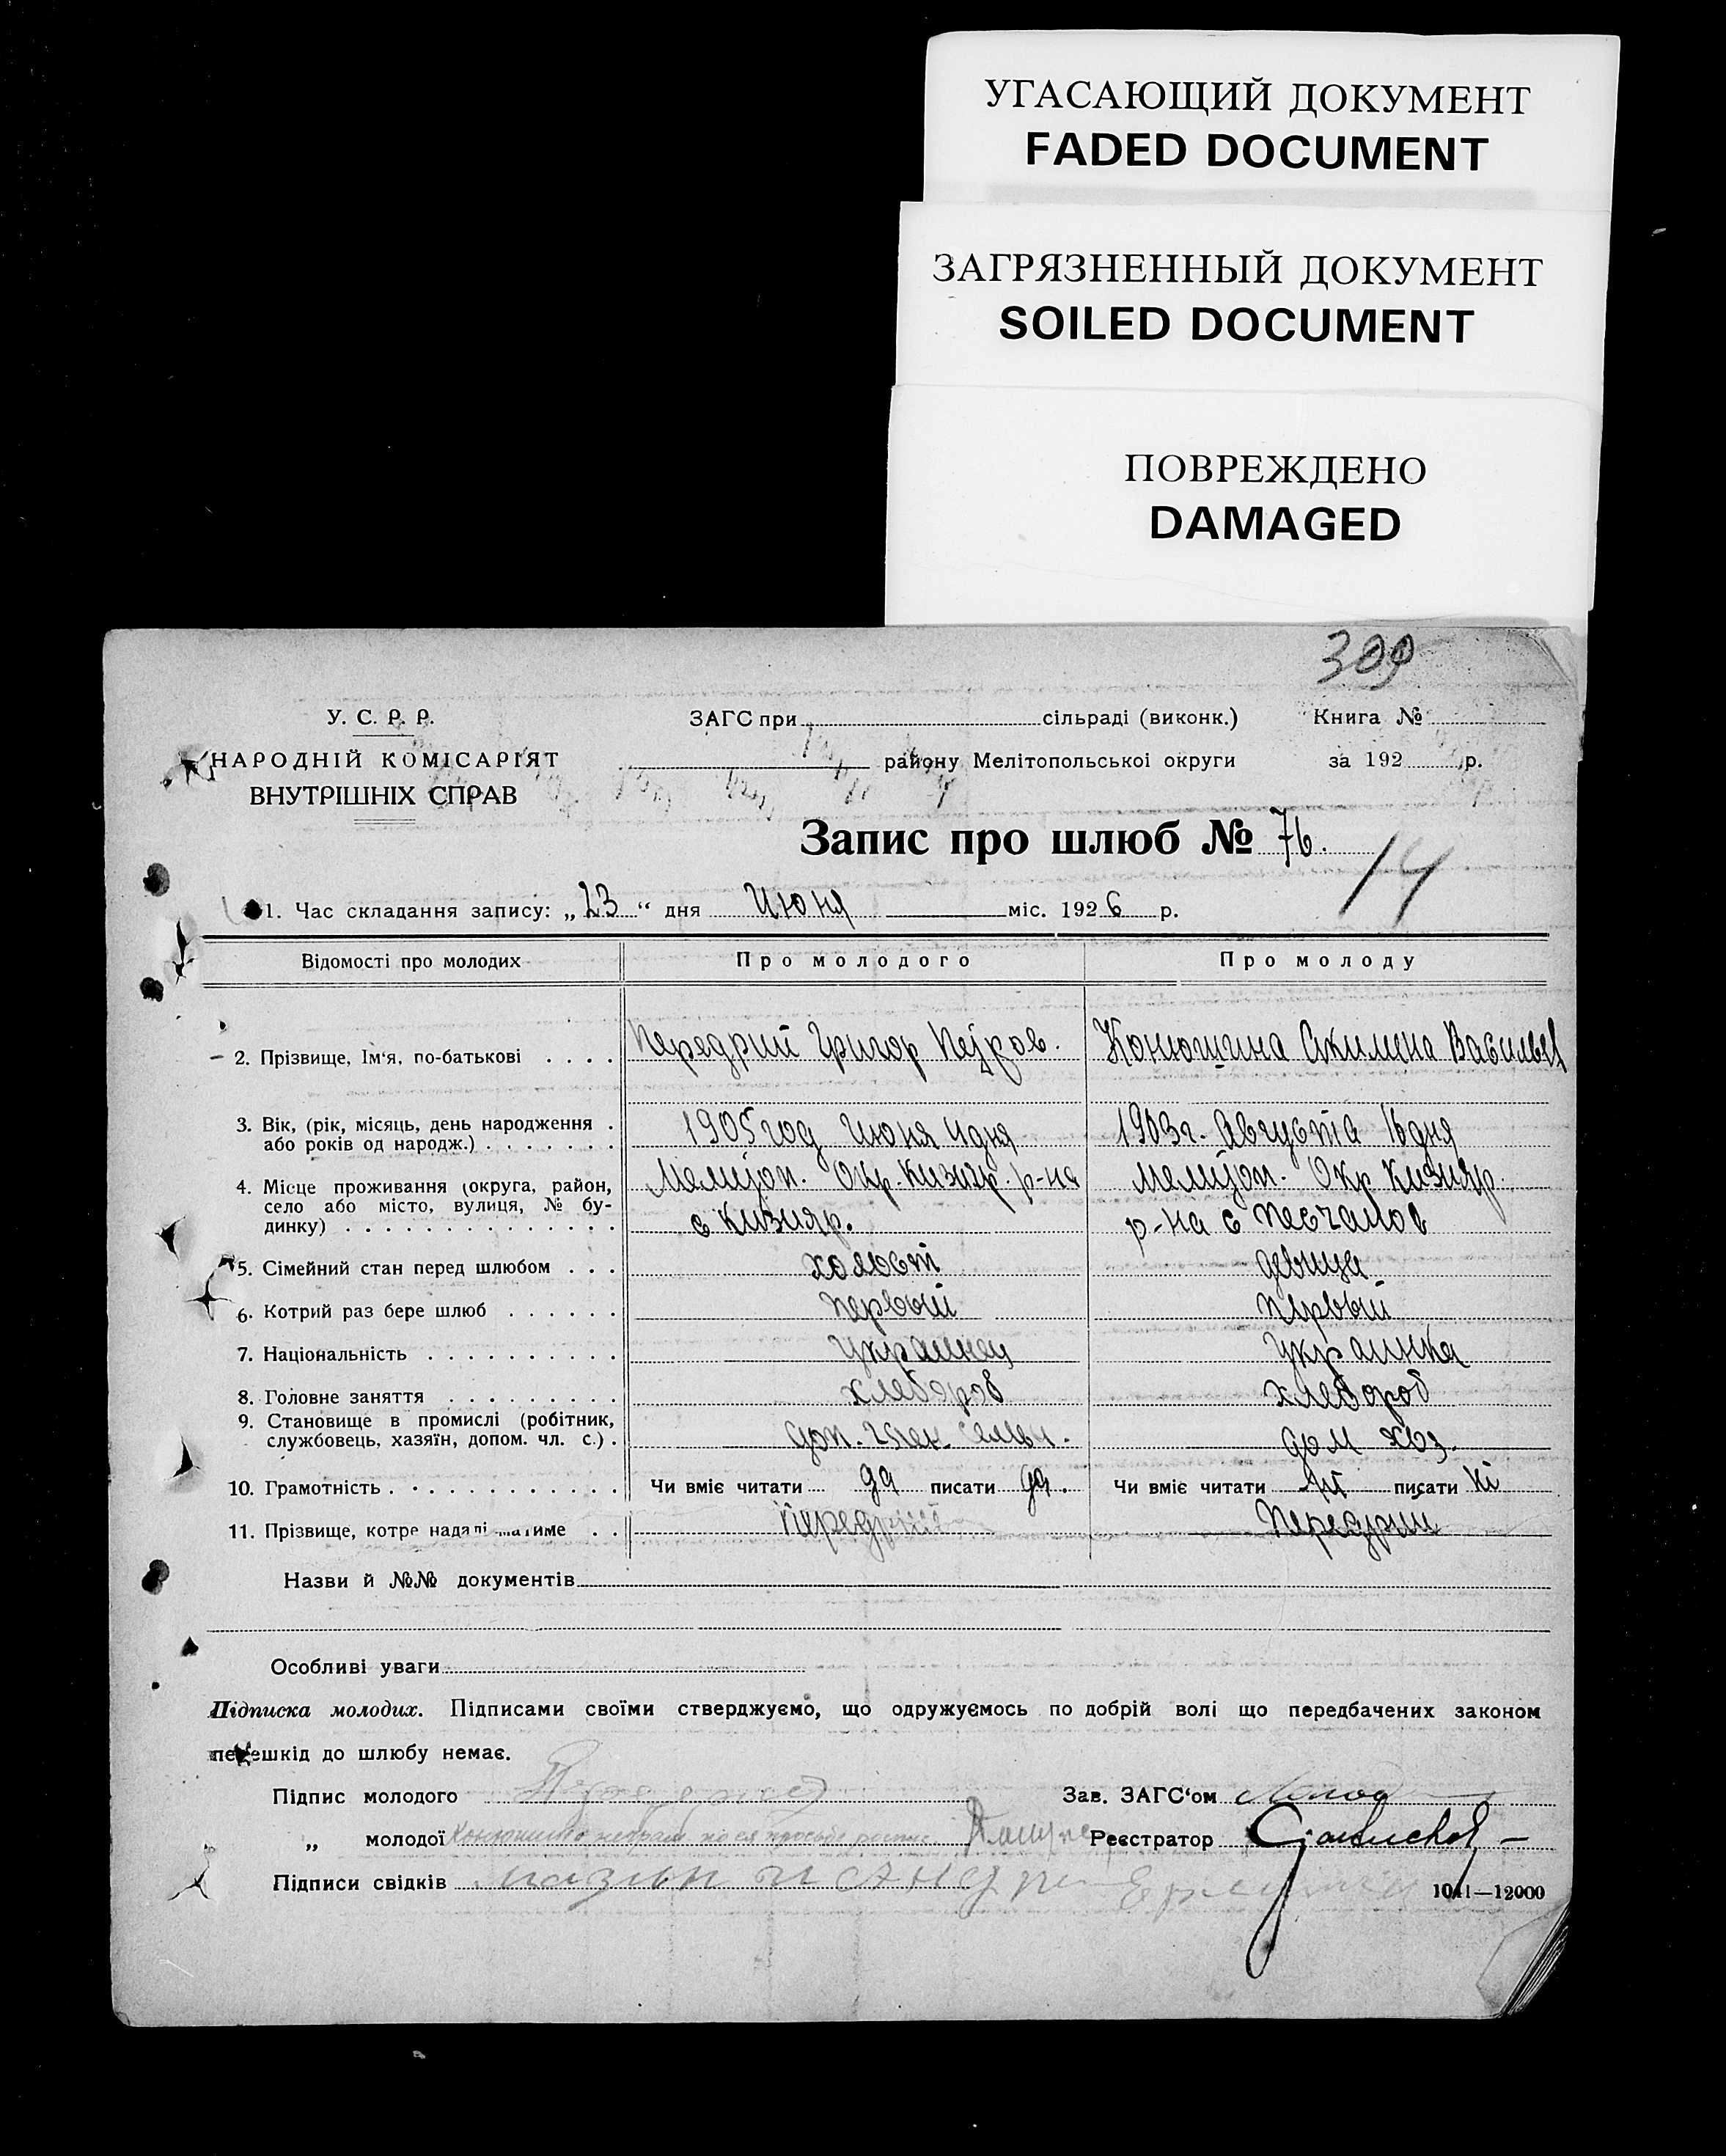 УГАСАЮЩИЙ ДОКУМЕНТ
FADED DOCUMENT
ЗАГРЯЗНЕННЫЙ ДОКУМЕНТ
SOILED DOCUMENT
ПОВРЕЖДЕНО
DAMAGED
309
У. С. Р. Р.
НАРОДНІЙ КОМІСАРІЯТ
ВНУТРІШНІХ СПРАВ
ЗАГС при сільраді (виконк.) Книга №
району Мелітопольської округи за 192 р.
Запис про шлюб № 76.
14
1. Час складання запису: „23“ дня Июня міс. 1926 р.
Відомості про молодих Про молодого Про молоду
2. Прізвище, Ім'я, по-батькові Передрий Григор Петров. Конюшина Акилина Васильев
3. Вік, (рік, місяць, день народження
або років од народж.) 1905 год Июня 11 дня 1903 г. Августа 16 дня
4. Місце проживання (округа, район,
село або місто, вулиця, № будинку)
Мелитоп. Окр. Кизияр. р-на Мелитоп. Окр Кизияр.
с Кизияр. р-на с Песчаное
5. Сімейний стан перед шлюбом холост девица
6. Котрий раз бере шлюб первый первый
7. Національність Украинец Украинка
8. Головне заняття хлебороб хлебороб
9. Становище в промислі (робітник,
службовець, хазяїн, допом. чл. с.) доп. член семьи. дом хоз.
10. Грамотність Чи вміє читати да писати да. Чи вміє читати ні писати ні
11. Прізвище, котре надалі матиме Передрий Передрий
Назви й №№ документів
Особливі уваги
Підписка молодих. Підписами своїми стверджуємо, що одружуємось по добрій волі що передбачених законом
перешкід до шлюбу немає.
Підпис молодого Зав. ЗАГС'ом
„ молодої Реєстратор
Підписи свідків
1041—12000